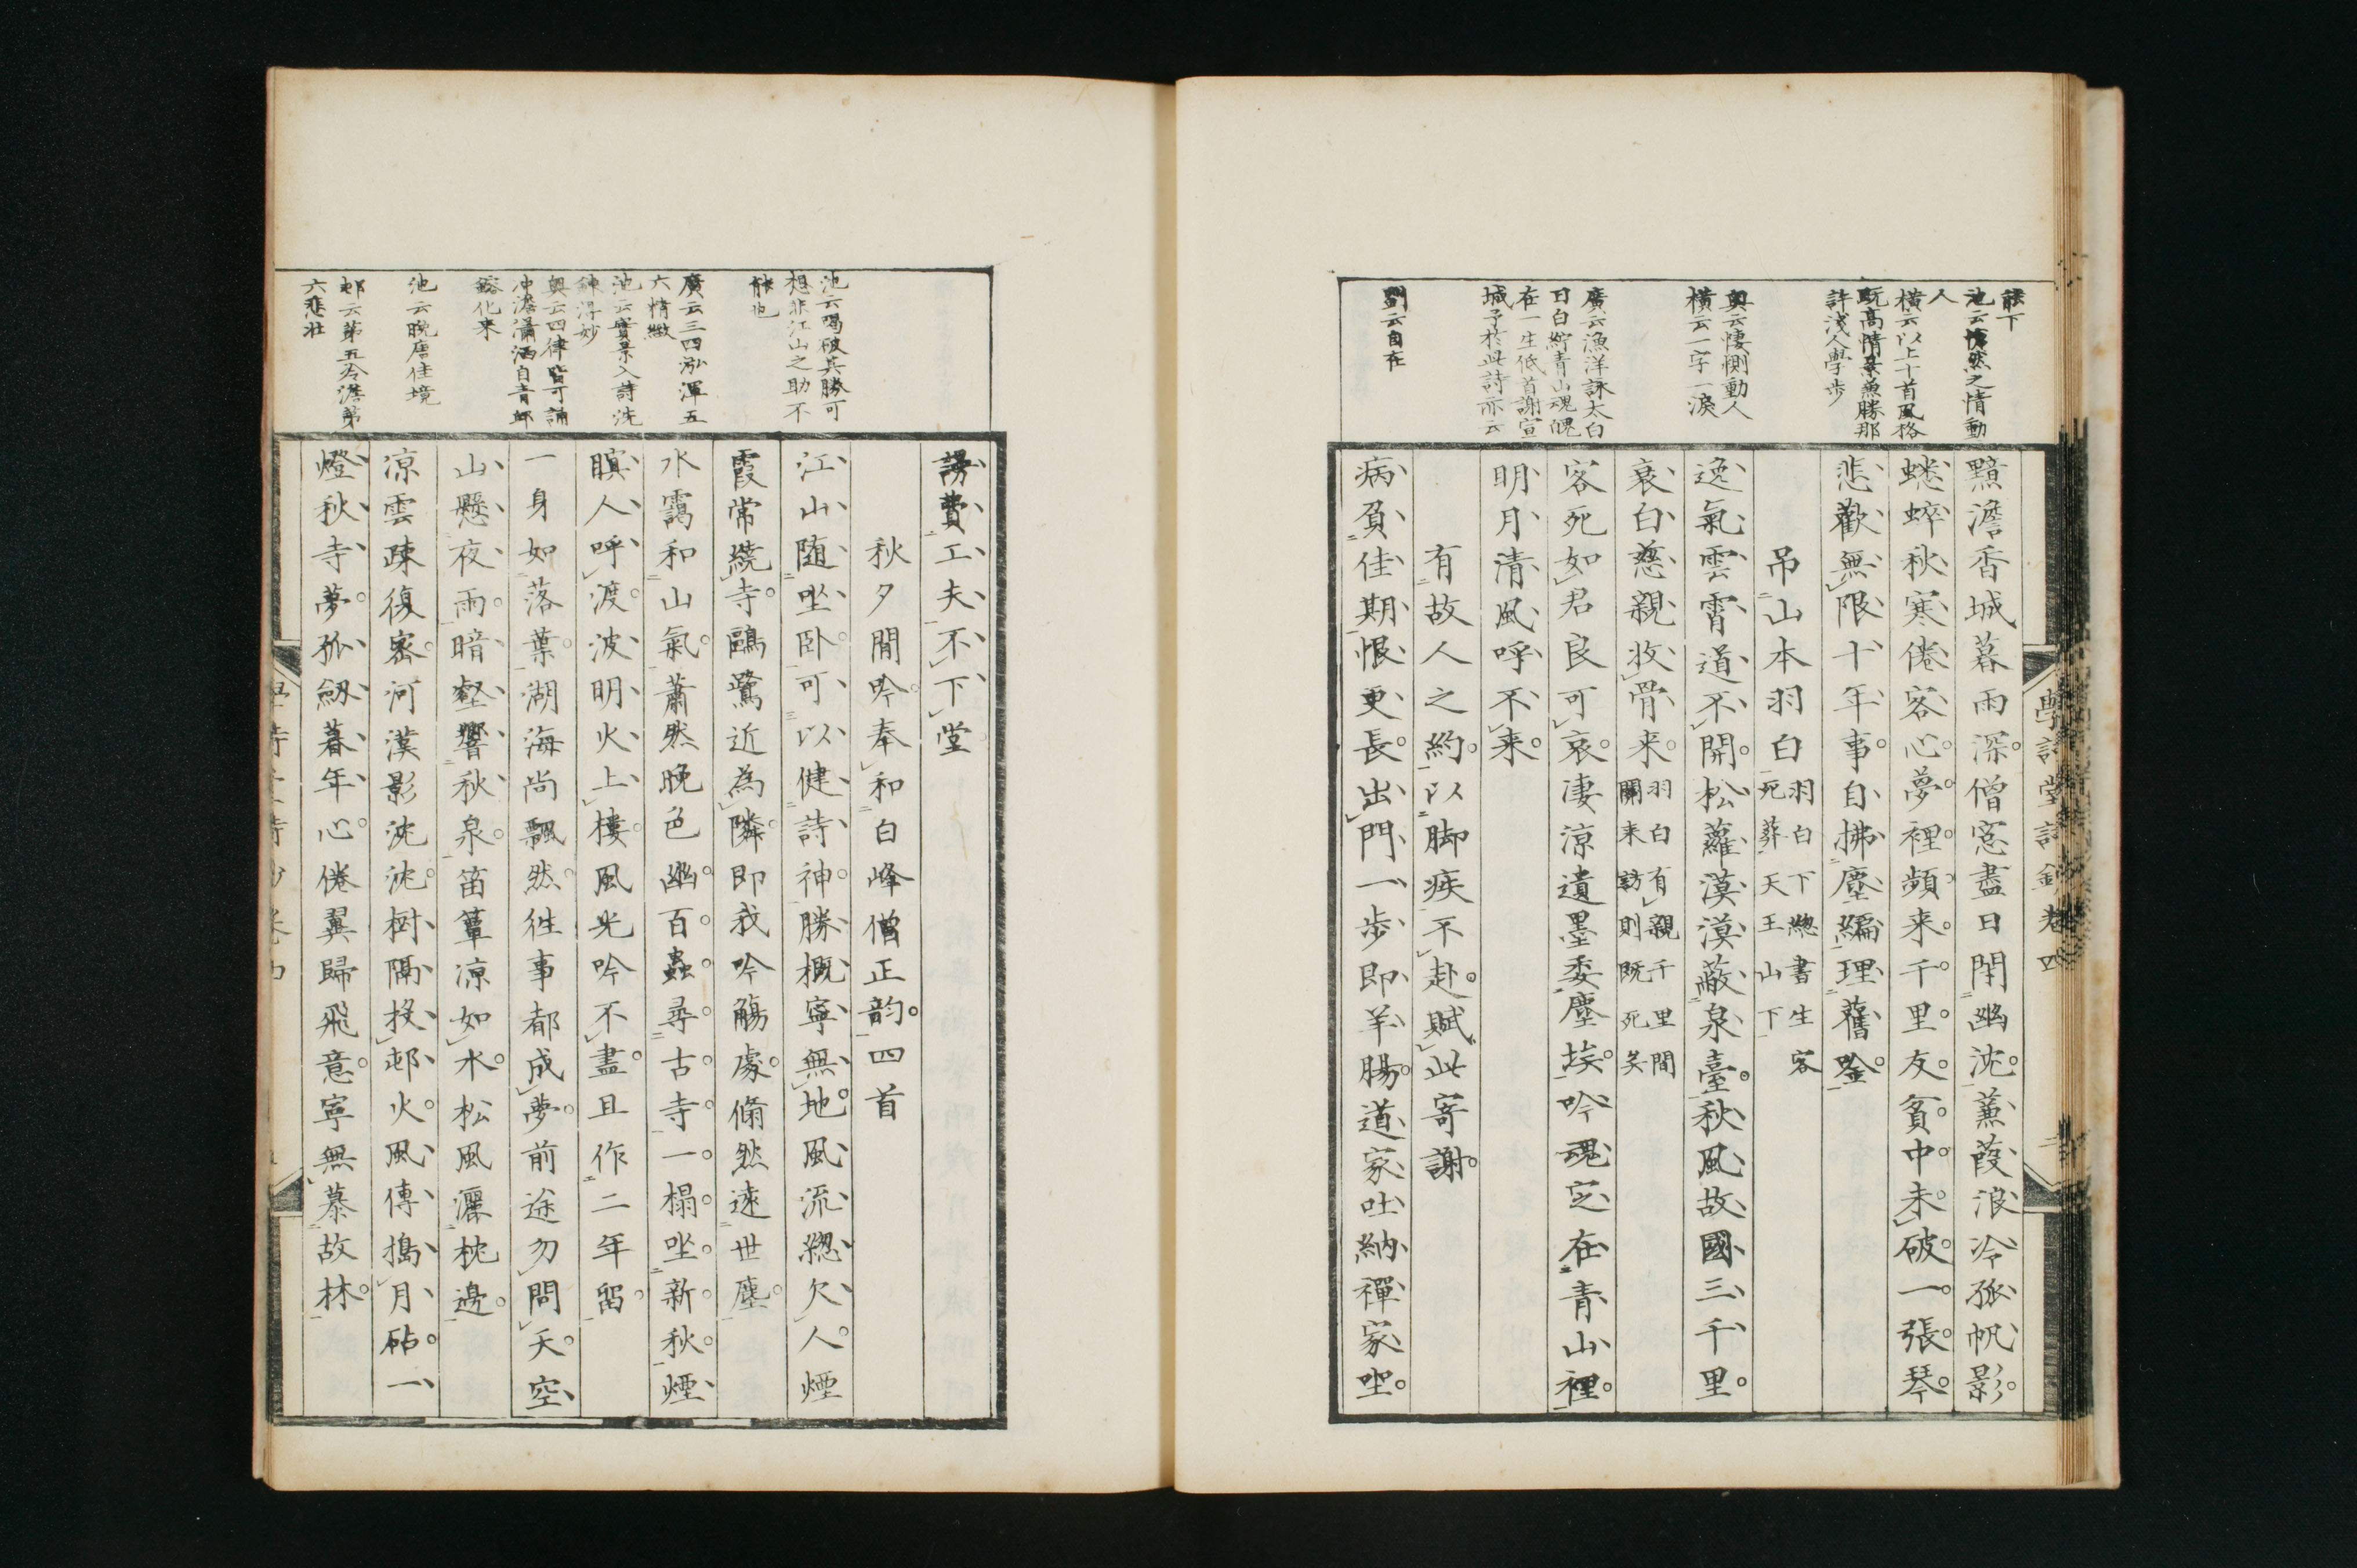 能下
池云悽然之情動
人
橫云以上十首風格
既高情景兼勝那
許淺人學步
奧云悽惻動人
橫云一字一淚
廣云漁洋詠太白
曰白紵青山魂魄
在一生低首謝宣
城予於此詩亦云
劉云自在
黯澹香城暮雨深僧窓盡日閑幽沈蒹葭浪冷孤帆影
蟋蟀秋寒倦客心夢裡頻来千里友貧中未破一張琴
悲歡無限十年事自拂塵編理舊吟
吊山本羽白 羽白下總書生客
死葬天王山下
逸氣雲霄道不開松蘿漠漠蔽泉臺秋風故國三千里
衰白慈親收骨来 羽白有親千里間
關来訪則既死矣
客死如君良可哀凄涼遺墨委塵埃吟魂定在青山裡
明月清風呼不来
有故人之約以脚疾不赴賦此寄謝
病負佳期恨更長出門一步即羊腸道家吐納禪家坐
學詩堂詩鈔卷四
池云喝破其勝可
想非江山之助不
能也
廣云三四泓渾五
六情緻
池云實景入詩洗
鍊得妙
奧云四律皆可誦
冲澹瀟洒自青邱
鎔化来
池云晚唐佳境
邨云第五冷澹第
六悲壯
謗費工夫不下堂
秋夕間吟奉和白峰僧正韵四首
江山随坐卧可以健詩神勝概寧無地風流總欠人煙
霞常繞寺鷗鷺近為隣即我吟觴處翛然遠世塵
水靄和山氣蕭然晚色幽百蟲尋古寺一榻坐新秋煙
瞑人呼渡波明火上樓風光吟不盡且作二年留
一身如落葉湖海尚飄然徃事都成夢前途勿問天空
山懸夜雨暗壑響秋泉笛簟凉如水松風灑枕邊
凉雲疎復密河漢影沈沈樹隔投邨火風傳搗月砧一
燈秋寺夢孤劒暮年心倦翼歸飛意寧無慕故林